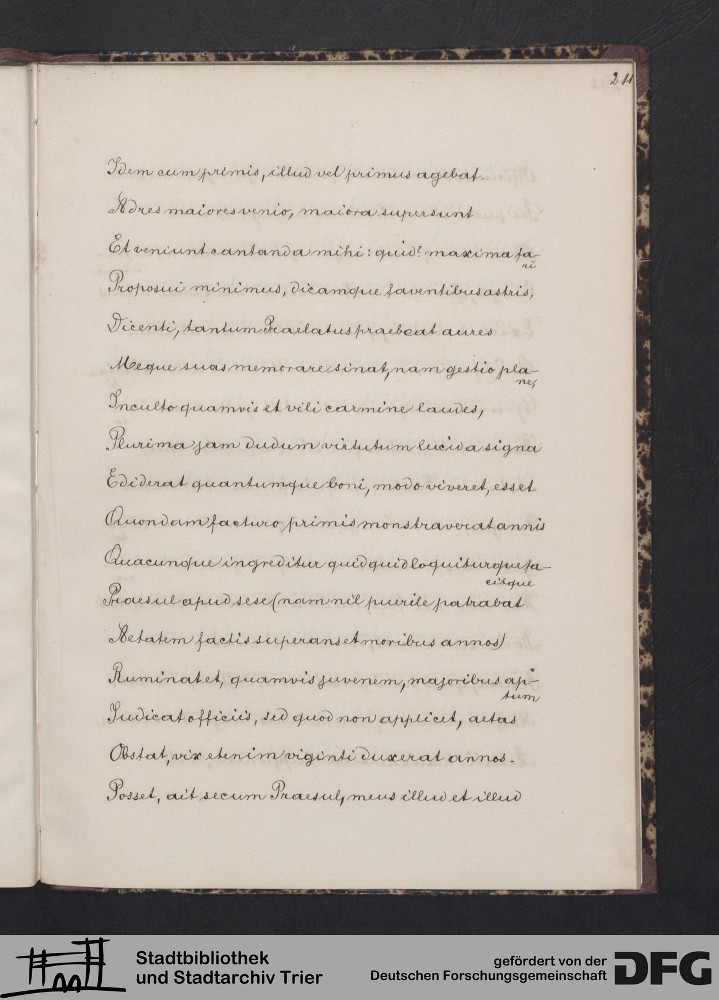 211
Idem cum primis, illud vel primus agebat.
Ad res maiores venio, maiora supersunt
Et veniunt cantanda mihi: quid? maxima fa-
ri
Proposui minimus, dicamque faventibus astris,
Dicenti, tantum Praelatus praebeat aures
Meque suas memorare sinat, nam gestio pla-
ne,
Inculto quamvis et vili carmine laudes,
Plurima jam dudum virtutum lucida signa
Ediderat quantumque boni, modo viveret, esset
Quondam facturo primis monstraverat annis
Quacunque ingreditur quidquid loquitur que fa-
citque
Praesul apud sese (nam nil puerile patrabat
Aetatem factis superans et moribus annos)
Ruminat et, quamvis juvenem, majoribus ap-
tum
Judicat officiis, sed quod non applicet, aetas
Obstat, vix etenim viginti duxerat annos.
Posset, ait secum Praesul, meus illud et illud
Stadtbibliothek
und Stadtarchiv Trier
gefördert von der
Deutschen Forschungsgemeinschaft
DFG